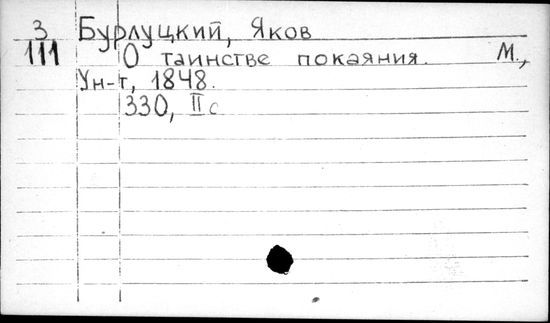 3 Бурлуцкий, Яков
111 О таинстве покаяния. М.,
Ун-т, 1848.
330, II с